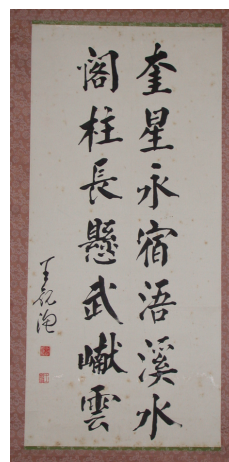 奎星永宿浯溪水
閣柱長懸武巘雲